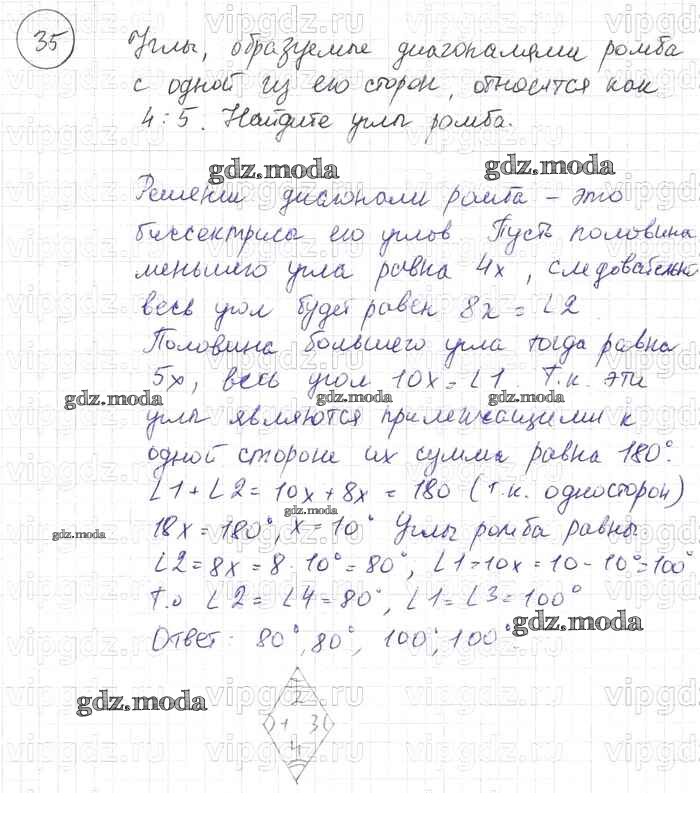 35
Углы, образуемые диагоналями ромба
с одной из его сторон, относятся как
4:5. Найдите углы ромба.
gdz.moda gdz.moda
Решении диагонали ромба – это
биссектрисы его углов. Пусть половина
меньшего угла равна 4x, следовательно
весь угол будет равен 8x = ∠2.
Половина большего угла тогда равна
5x, весь угол 10x = ∠1. Т.к. эти
gdz.moda gdz.moda gdz.moda
углы являются прилежащими к
одной стороне их сумма равна 180°.
∠1 + ∠2 = 10x + 8x = 180 (т.к. односторон)
gdz.moda
18x = 180°, x = 10° Углы ромба равны
gdz.moda
∠2 = 8x = 8 · 10° = 80°, ∠1 = 10x = 10 - 10° = 100°
Т.о ∠2 = ∠4 = 80°, ∠1 = ∠3 = 100°
Ответ: 80°, 80°, 100°, 100°.
gdz.moda
gdz.moda
2
1 3
4
vipgdz.ru